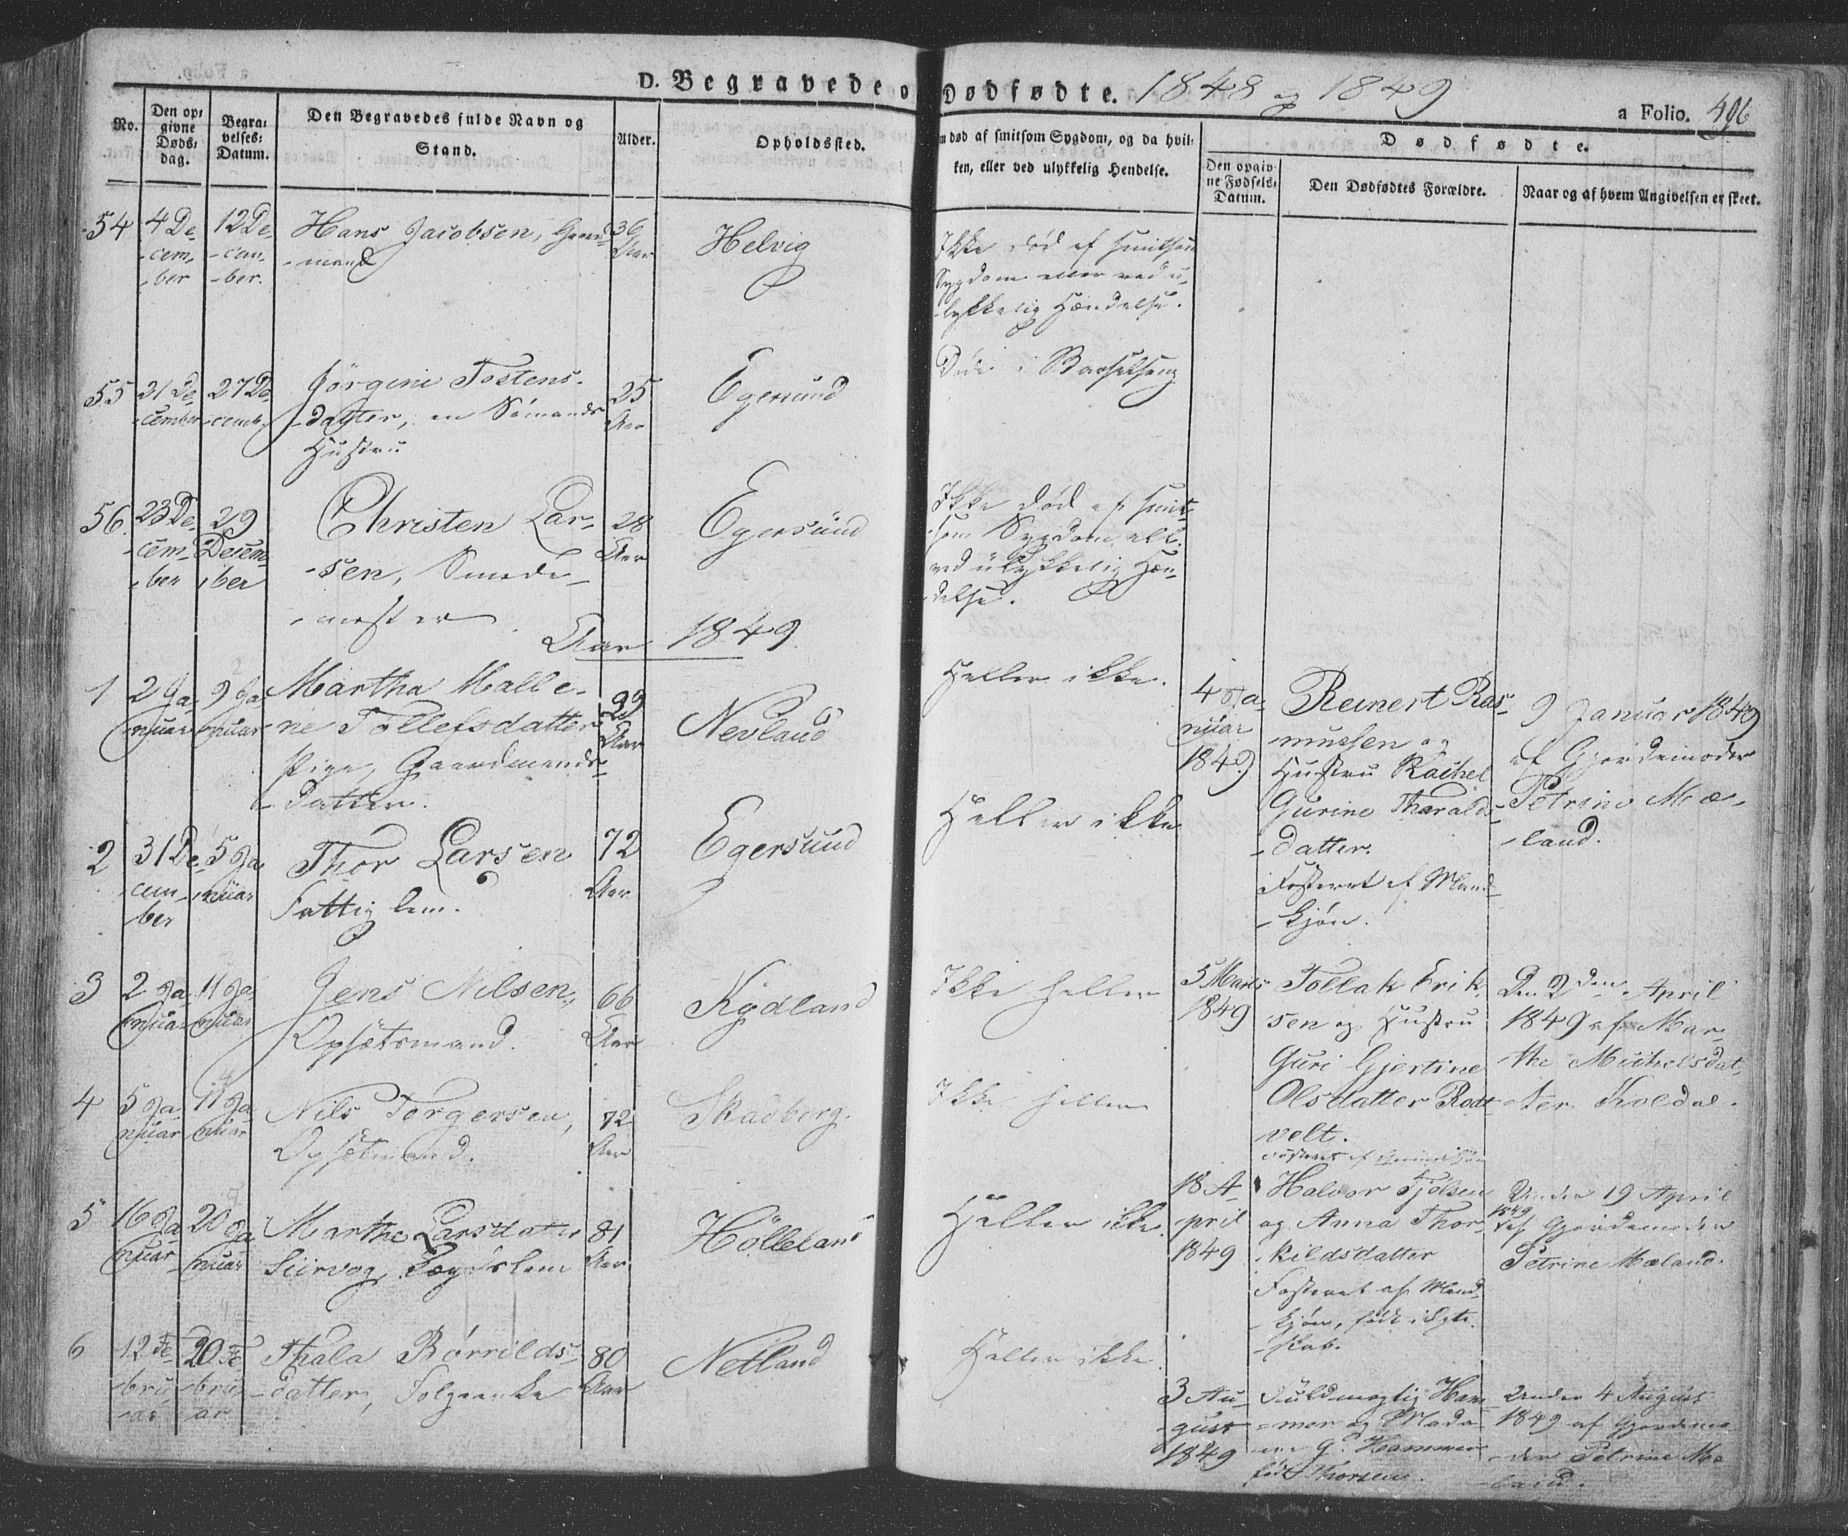 D. Begravede o Dødfødte. 1848 og 1849
a Folio. 496
No.
Den op-
givne
Døds-
dag.
Begra-
velses-
Datum.
Den Begravedes fulde Navn og
Stand.
Alder.
Opholdssted.
m død af smitsom Sygdom, og da hvil-
ken, eller ved ulykkelig Hendelse.
Dødfødte.
Den opgiv-
ne Fødsels-
Datum.
Den Dødfødtes Forældre.
Naar og af hvem Angivelsen er skeet.
54
4 De-
-cem-
-ber
12 De-
-cem-
-ber.
Hans Jacobsen, Gaard-
-mand
36
Aar
Helvig
Ikke død af smitsom
Sygdom eller ved u-
-lykkelig Hændelse.
55
21 De-
-cember
27 De-
-cemb.
Jörgine Tostens-
-datter, en Sömands
Hustru
25
Aar
Egersund
Døde i Barselseng
56.
23 De-
-cem-
-ber
29
Decem-
-ber
Christen Lar-
-sen, Smede-
-mester
28
Aar
Egersund
Ikke død af smit-
-som Sygdom, ell.
ved ulykkelig Hæn-
-delse.
Aar 1849
1
2 Ja-
-nuar
9 Ja-
-nuar
Martha Malle-
-ne Tollefsdatter
Pige, Gaardmands-
-datter.
Aar
Nevland
Heller ikke.
4 Ja-
-nuar
1849
Reinert Ras-
-mussen og
Hustru Rachel
Gurine Tharalds-
-datter.
Fosteret af Mand-
-kjön.
9 Januar 1849
af Gjordemoder
Petrine Mæ-
-land.
2
31 De-
-cem-
-ber
5 Ja-
-nuar
Thor Larsen
Fattiglem.
72
Aar
Egersund
Heller ikke
3
2 Ja-
-nuar
11 Ja-
-nuar
Jens Nilsen,
Opsætsmand.
66
Aar
Kydland
Ikke heller
5 Marts
1849
Tollak Erik-
sen og Hustru
Guri Gjertine
Olsdatter Rodt-
velt.
Den 2den April
1849 af Mar-
the Michelsdat-
-ter Koldal.
4
5 Ja-
nuar
11 Ja-
nuar
Nils Torgersen,
Opsætmand.
72
Aar
Skadberg.
Ikke heller
5
16 Ja-
nuar
20 Ja-
nuar
Marthe Larsdatter
Siirvog, Lægdslem
81
Aar
Hölleland
Heller ikke.
18 A-
-pril
1849
Halvor Tjölsen
og Anna Thor-
-kildsdatter
Fosteret af Mand-
-kjön, født i Ægte-
-skab.
Under 19 April
1849
af Gjordemoder
Petrine Mæland.
6
12 Fe-
bru-
-ar
20 Fe-
bru-
ar
Thala Börrilds-
-datter, Folgeenke
80
Aar
Netland
Heller ikke.
3 Au-
-gust
1849
Fuldmægtig Ham-
-mer og Mada-
-me G. Hammer
født Thorsen.
Under 4 August
1849 af Gjordemo-
-der Petrine Mæ-
-land.